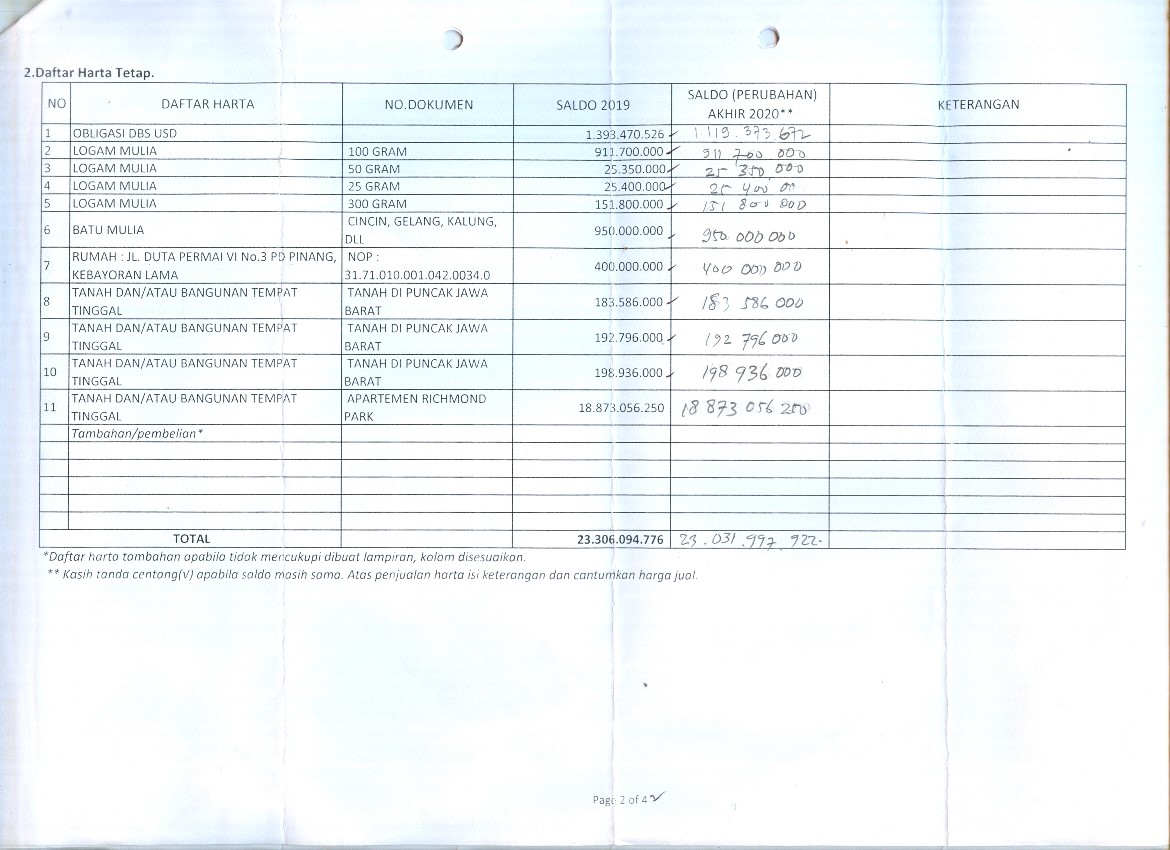 2.Daftar Harta Tetap.
NO DAFTAR HARTA NO.DOKUMEN SALDO 2019 SALDO (PERUBAHAN) AKHIR 2020** KETERANGAN
1 OBLIGASI DBS USD 1.393.470.526 1.119.373.672
2 LOGAM MULIA 100 GRAM 911.700.000 911 700 000
3 LOGAM MULIA 50 GRAM 25.350.000 25 350.000
4 LOGAM MULIA 25 GRAM 25.400.000 25 400 00
5 LOGAM MULIA 300 GRAM 151.800.000 151 800 000
6 BATU MULIA CINCIN, GELANG, KALUNG, DLL 950.000.000 950 000 000
7 RUMAH : JL. DUTA PERMAI VI No.3 PD PINANG, KEBAYORAN LAMA NOP : 31.71.010.001.042.0034.0 400.000.000 400 000 000
8 TANAH DAN/ATAU BANGUNAN TEMPAT TINGGAL TANAH DI PUNCAK JAWA BARAT 183.586.000 183 586 000
9 TANAH DAN/ATAU BANGUNAN TEMPAT TINGGAL TANAH DI PUNCAK JAWA BARAT 192.796.000 192 796 000
10 TANAH DAN/ATAU BANGUNAN TEMPAT TINGGAL TANAH DI PUNCAK JAWA BARAT 198.936.000 198 936 000
11 TANAH DAN/ATAU BANGUNAN TEMPAT TINGGAL APARTEMEN RICHMOND PARK 18.873.056.250 18 873 056 250
Tambahan/pembelian*
TOTAL 23.306.094.776 23.031.997.922-
*Daftar harta tambahan apabila tidak mencukupi dibuat lampiran, kolom disesuaikan.
** Kasih tanda centong(v) apabila saldo masih sama. Atas penjualan harta isi keterangan dan cantumkan harga jual.
Page 2 of 4